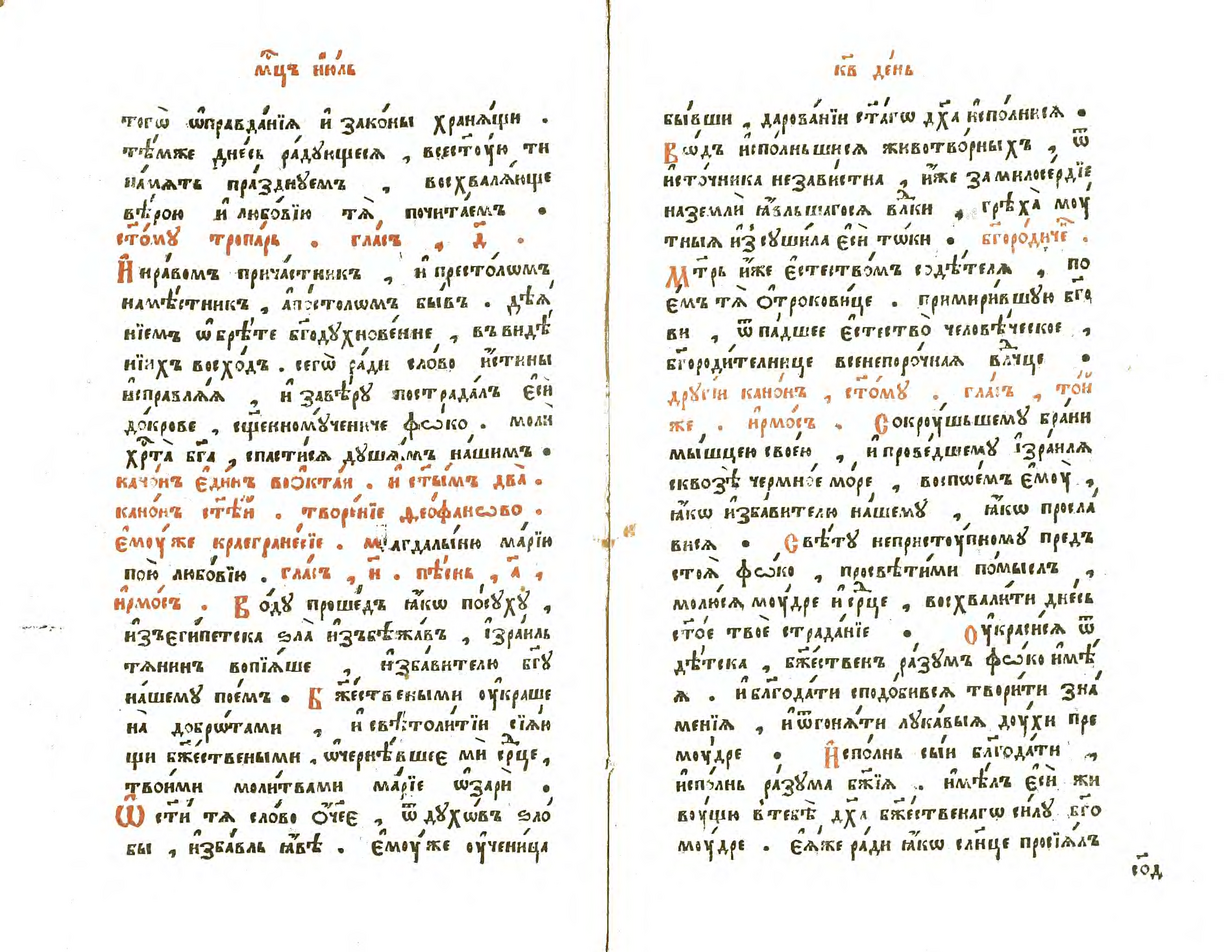 мц҃ъ ию́ль
тогѡ̀ ѡ҆правда́нїѧ и҆ зако́ны храни́щи .
тѣ́мже дне́сь ра́дующесѧ , всест҃у́ю ти
па́мѧть пра́зднуемъ , восхвалѧ́юще
вѣ́рою и҆ любо́вїю тѧ̀ почита́емъ .
ст҃о́му тропа́рь . гла́съ , д҃ .
И҆ нра́вомъ прича́стникъ , и҆ престо́лѡмъ
намѣ́стникъ , апⷭ҇толѡмъ бы́въ . дѣѧ́
нїемъ ѡ҆брѣ́те бг҃одухнове́нне , въ видѣ́
нїихъ восхо́дъ . сегѡ̀ ра́ди сло́во и҆́стины
и҆справлѧ́ѧ , и҆ за вѣ́ру пострада́лъ є҆сѝ
до кро́ве , сщ҃енному́чениче фѡ́ко . молѝ
хрⷭ҇та̀ бг҃а , спасти́сѧ душа́мъ на́шимъ .
кано́нъ є҆ди́нъ во ѻ҆кта́и . и҆ ст҃ы́мъ два̀ .
кано́нъ ст҃ѣ́й . творе́нїе ѳеофа́ново .
є҆мꙋ́же краегране́сїе . магдалы́ню марі́ю
пою̀ любо́вїю . гла́съ , и҃ . пѣ́снь , а҃ ,
і҆рмо́съ . Во́ду проше́дъ ꙗ҆́кѡ по су́ху ,
и҆зъ є҆ги́петска ѕла̀ и҆збѣжа́въ , і҆зра́иль
тѧнинъ вопїѧ́ше , и҆зба́вителю бг҃у
на́шему пое́мъ . Бж҃е́ствеными ѹ҆кра́ше
на̀ добро́тами , и҆ свѣтоли́тїи сїѧ́ю
щи бж҃е́ствеными , ѡ҆чернѣ́вшее мѝ ср҃це ,
твои́ми моли́твами марі́е ѡ҆зарѝ .
Ѿ сти́ тѧ сло́во ѻ҆́чее , ѿ духо́въ ѕло́
бы , и҆зба́вль ꙗ҆́вѣ . є҆мꙋ́же ѹ҆чени́ца
кв҃ де́нь
бы́вши , дарова́нїи ст҃а́гѡ дх҃а и҆спо́лнисѧ .
Во́дъ и҆спо́лньшисѧ животво́рныхъ , ѿ
и҆сто́чника незави́стна , и҆́же за милосе́рдїе
на землѝ ꙗ҆́вльшагосѧ влⷣки , грѣха̀ мꙋ́
тныѧ и҆зсуши́ла є҆сѝ то́ки . бг҃оро́диче .
Мт҃рь и҆́же є҆стество́мъ содѣ́телѧ , по
е́мъ тѧ̀ ѻ҆трокови́це . примири́вшую бг҃о
ви , ѿпа́дшее є҆стество̀ человѣ́ческое ,
бг҃ороди́телнице всенепоро́чнаѧ влⷣчце .
другі́й кано́нъ , ст҃о́му . гла́съ , то́й
же . і҆рмо́съ . Сокрꙋ́шьшему бра́ни
мы́шцею свое́ю , и҆ прове́дшему і҆зра́илѧ
сквозѣ̀ чермно́е мо́ре , воспои́мъ є҆мꙋ̀ ,
ꙗ҆́кѡ и҆зба́вителю на́шему , ꙗ҆́кѡ просла́
висѧ . Свѣ́ту непристꙋ́пному предъ
стоѧ̀ фѡ́ко , просвѣти́ ми по́мыслъ ,
молю́сѧ мꙋ́дре и҆ ср҃це , восхвали́ти дне́сь
ст҃о́е твоѐ страда́нїе . Ѹ҆краси́сѧ ѿ
дѣ́тска , бж҃е́ственъ ра́зумъ фѡ́ко и҆мѣ́
ѧ . и҆ блгⷣода́ти сподо́бивсѧ твори́ти зна́
менїѧ , и҆ ѿгонѧ́ти лука́выѧ дꙋ́хи пре
мꙋ́дре . И҆спо́лнь сы́и блгⷣода́ти ,
и҆спо́лнь ра́зума бж҃їѧ . и҆мѣ́лъ є҆сѝ жи
вꙋ́щю в тебѣ̀ дх҃а бж҃е́ственагѡ си́лу бг҃о
мꙋ́дре . є҆ѧ́же ра́ди ꙗ҆́кѡ сл҃нце просїѧ́лъ
сод